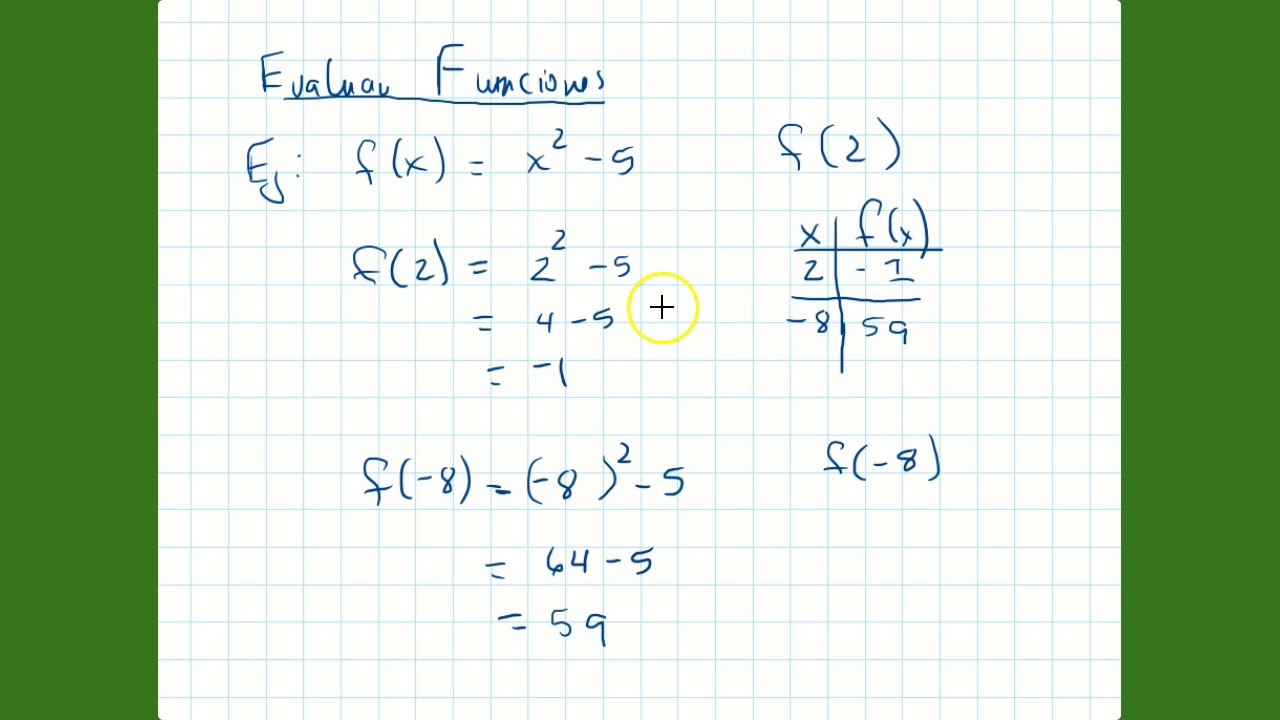 Evaluar Funciones
Ej: f(x) = x² - 5
f(2)
f(2) = 2² - 5
= 4 - 5
= -1
x | f(x)
2 | -1
-8 | 59
f(-8) = (-8)² - 5
f(-8)
= 64 - 5
= 59